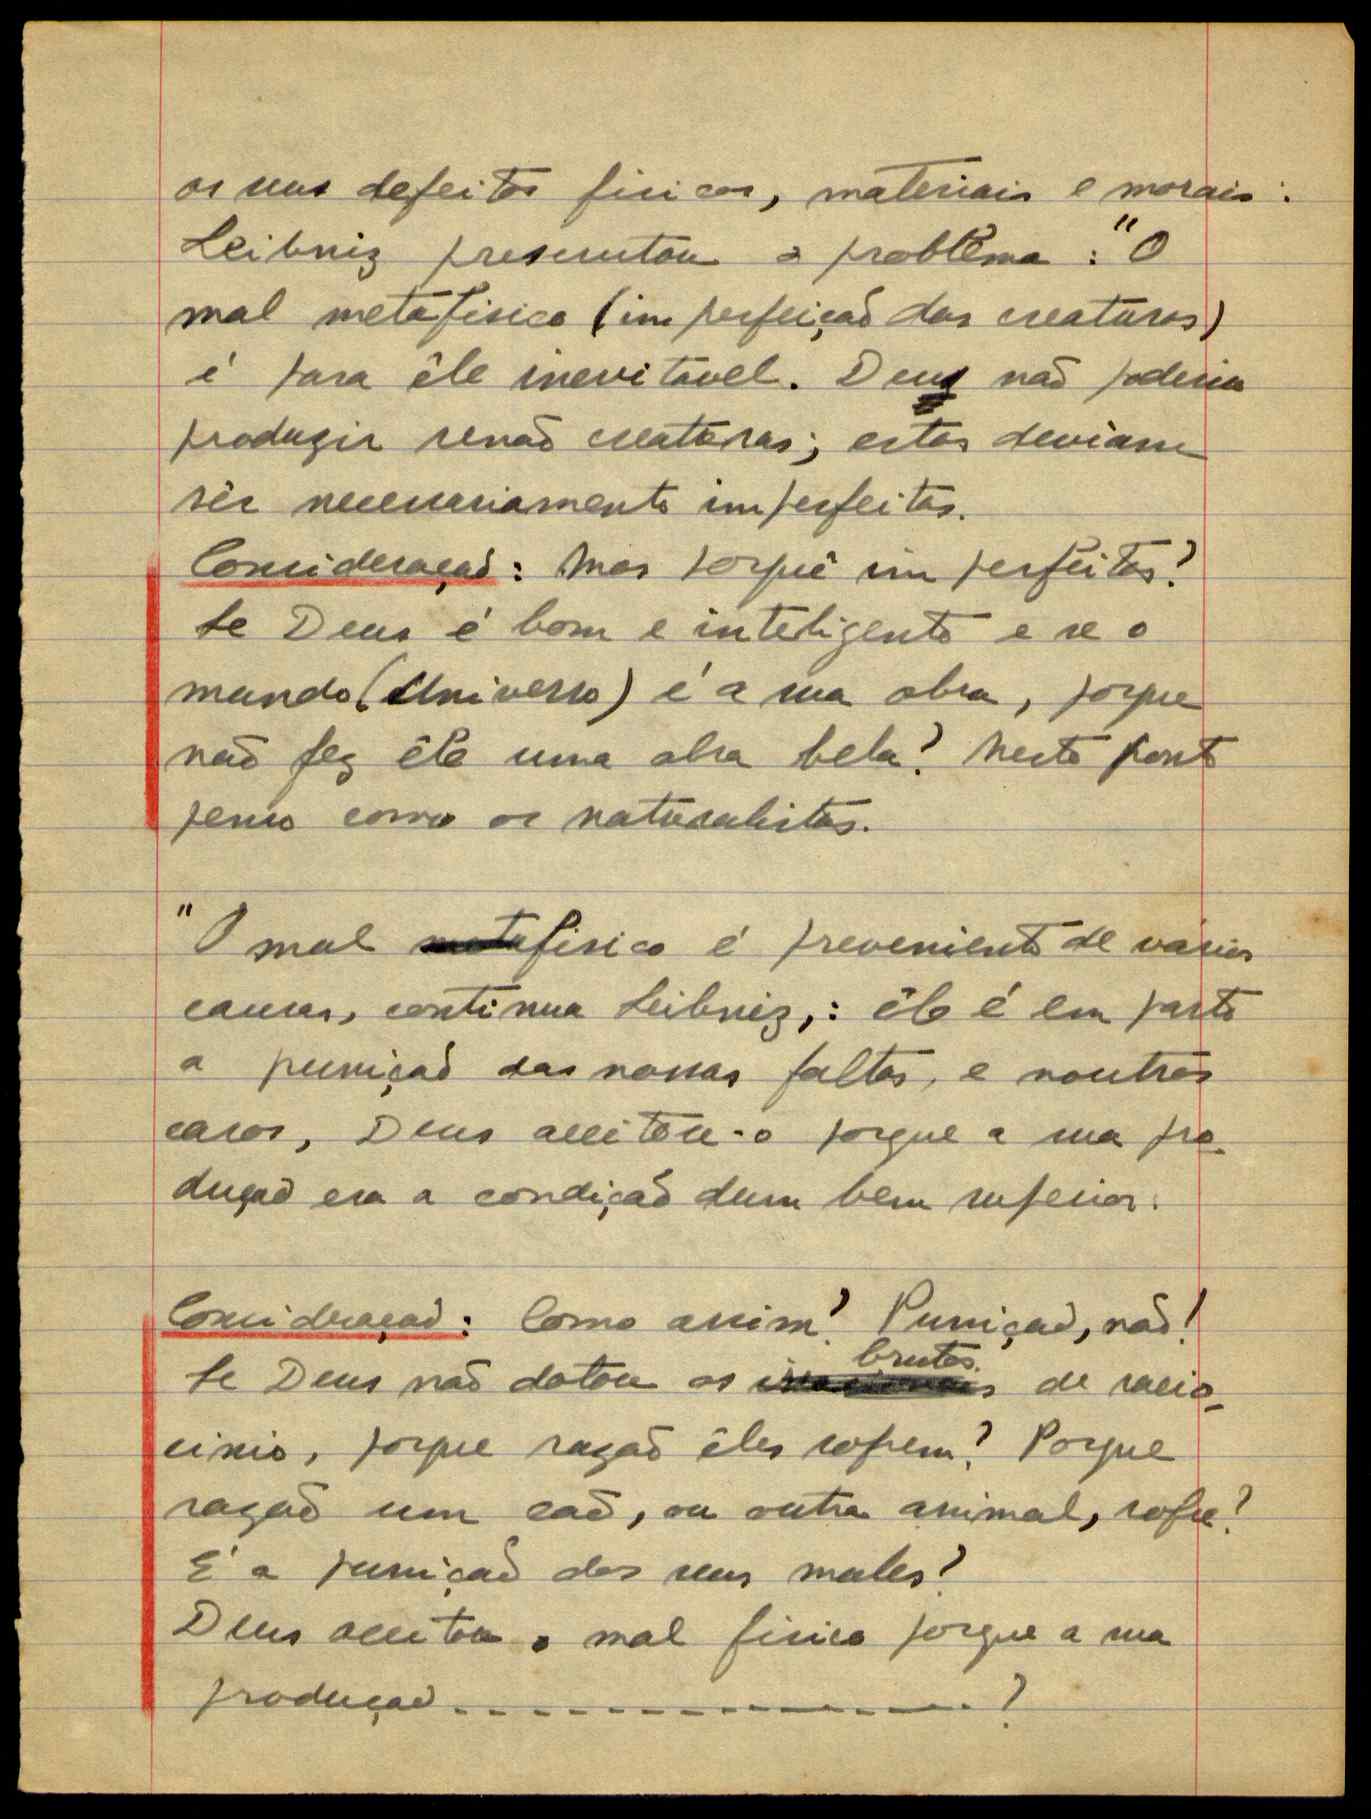 os seus defeitos fisicos, materiais e morais:
Leibniz prescrutou o problêma: "O
mal metafisico (imperfeição das creaturas)
é para êle inevitável. Deus não poderia
produzir senão creaturas; estas deviam
sêr necessariamente imperfeitas.
Consideração: Mas porquê imperfeitas?
Se Deus é bom e inteligente e se o
mundo (Universo) é a sua obra, porque
não fez êle uma obra bela? Neste ponto
penso como os naturalistas.
"O mal fisico é preveniente de várias
causas, continua Leibniz,: êle é em parte
a punição das nossas faltas, e noutros
casos, Deus aceitou-o porque a sua pro-
dução era a condição dum bem superior.
Consideração: Como assim? Punição, não!
Se Deus não dotou os irracionais brutos de racio-
cinio, porque razão êles sofrem? Porque
razão um cão, ou outro animal, sofre?
É a punição dos seus males?
Deus aceitou o mal fisico porque a sua
produção - - - - - - - - - - - - - - ?